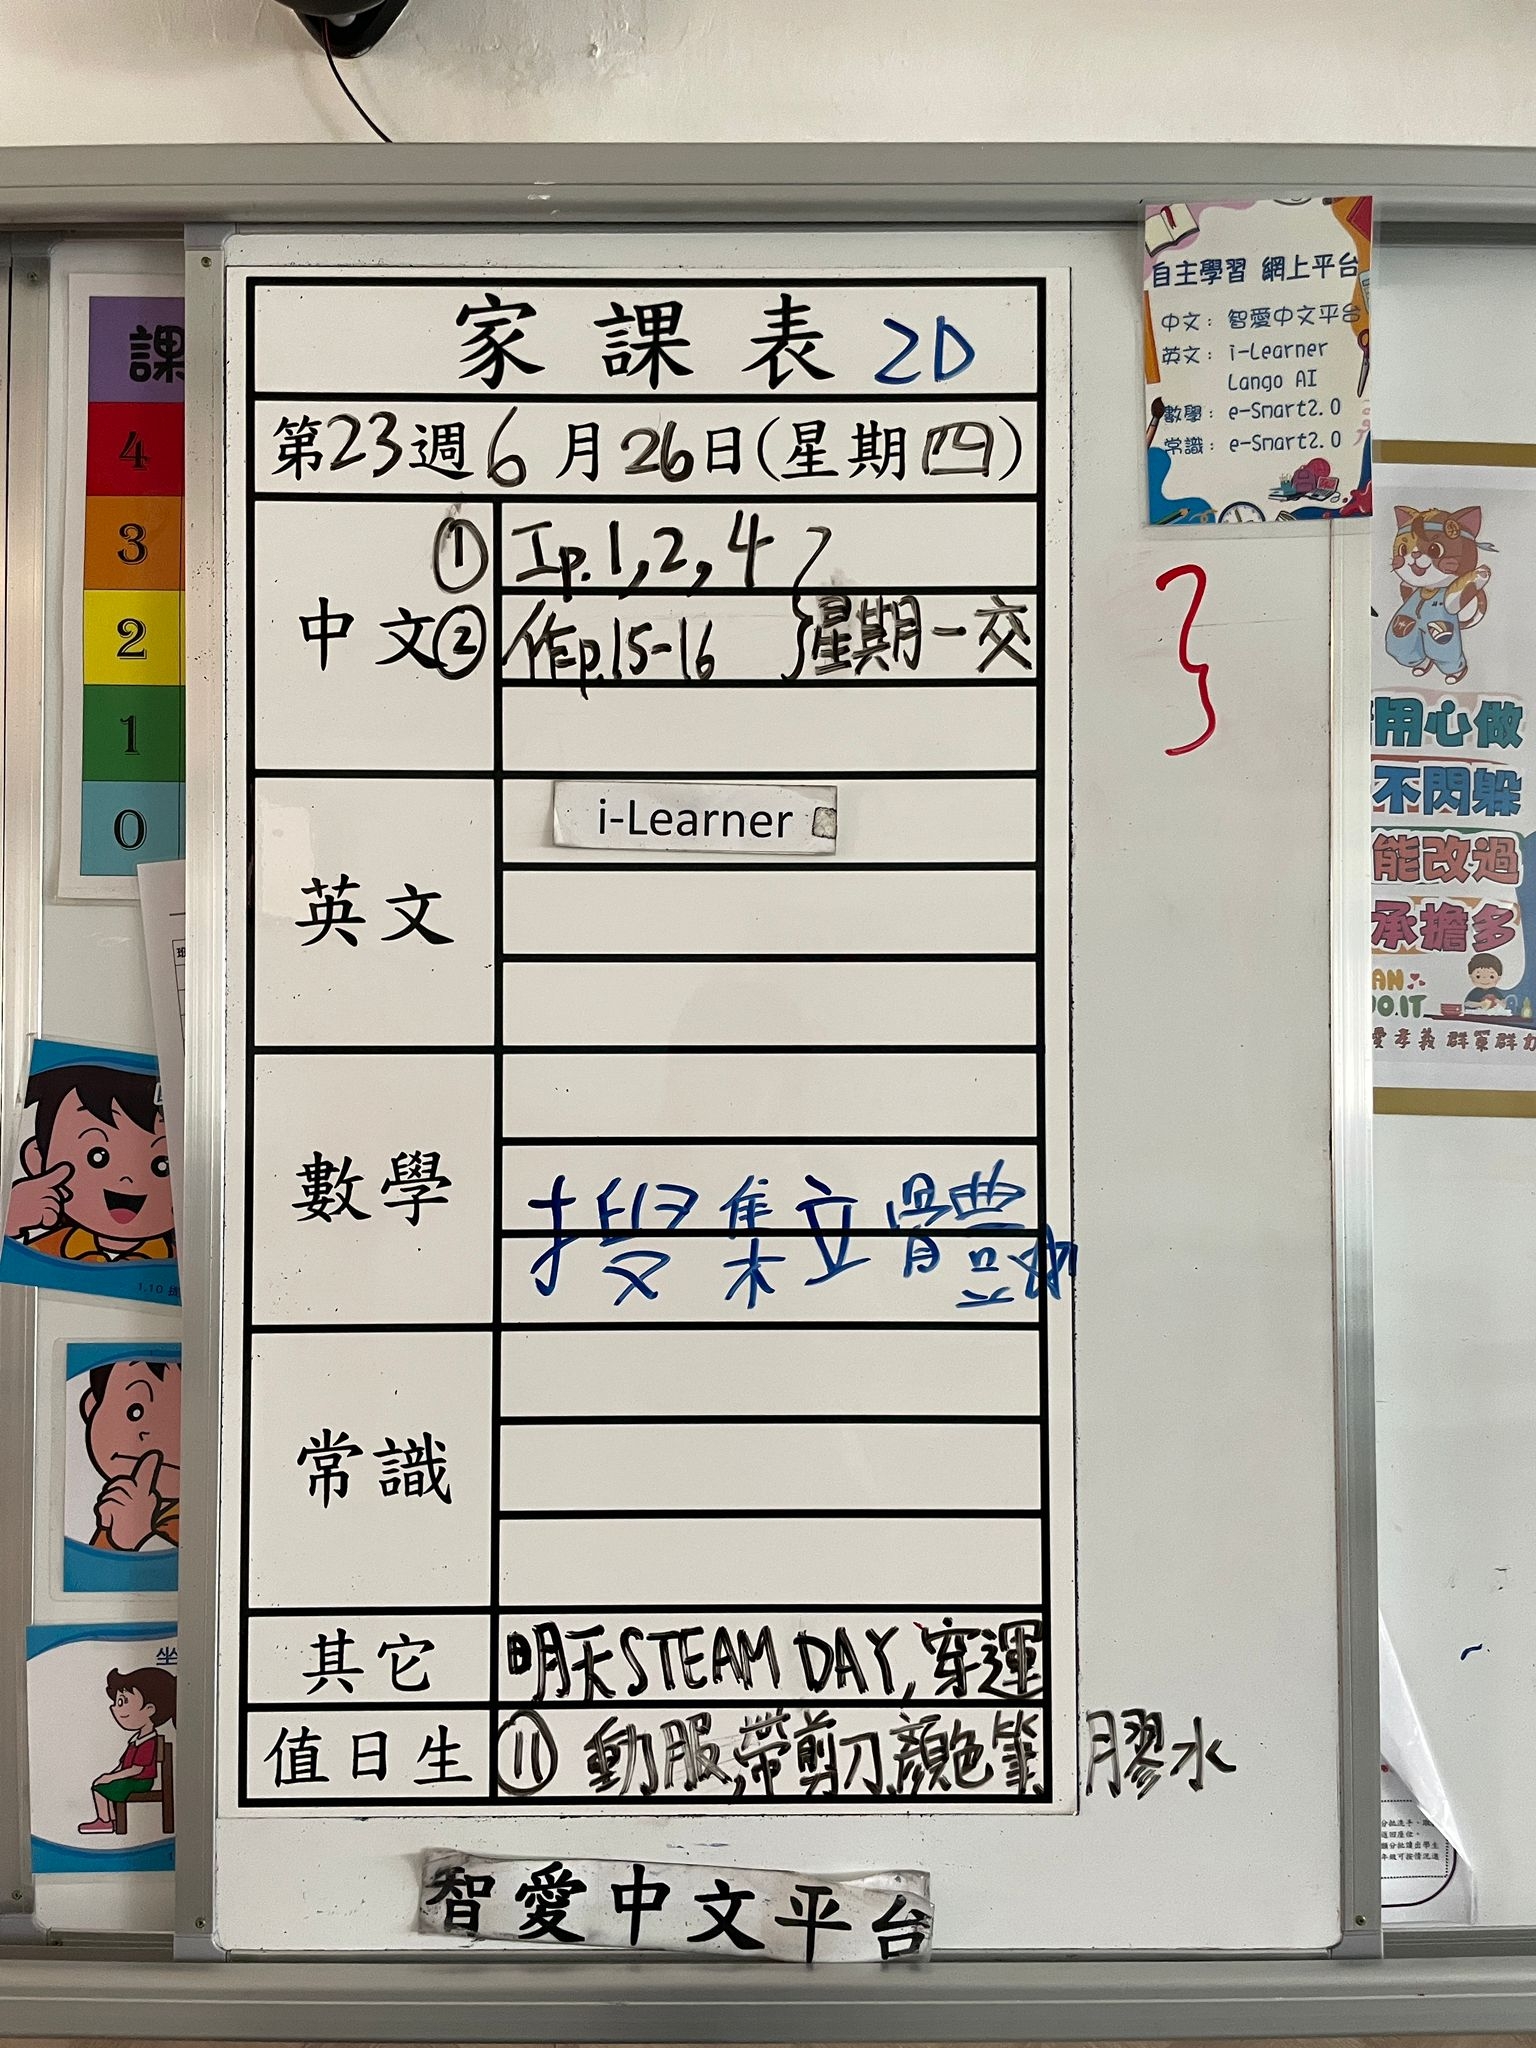 家課表 2D
第23週6月26日(星期四)
中文
① 工p.1,2,4
② 作p.15-16 星期一交
英文
i-Learner
數學
搜集立體
常識
其它
明天STEAM DAY,穿運
值日生
⑪ 動服,帶剪刀,顏色筆,膠水
智愛中文平台
自主學習 網上平台
中文:智愛中文平台
英文:i-Learner
Lango AI
數學:e-Smart2.0
常識:e-Smart2.0
課
4
3
2
1
0
1.10
坐
用心做
不閃躲
能改過
承擔多
AN
O.IT
愛 孝 義 群 策 群 力